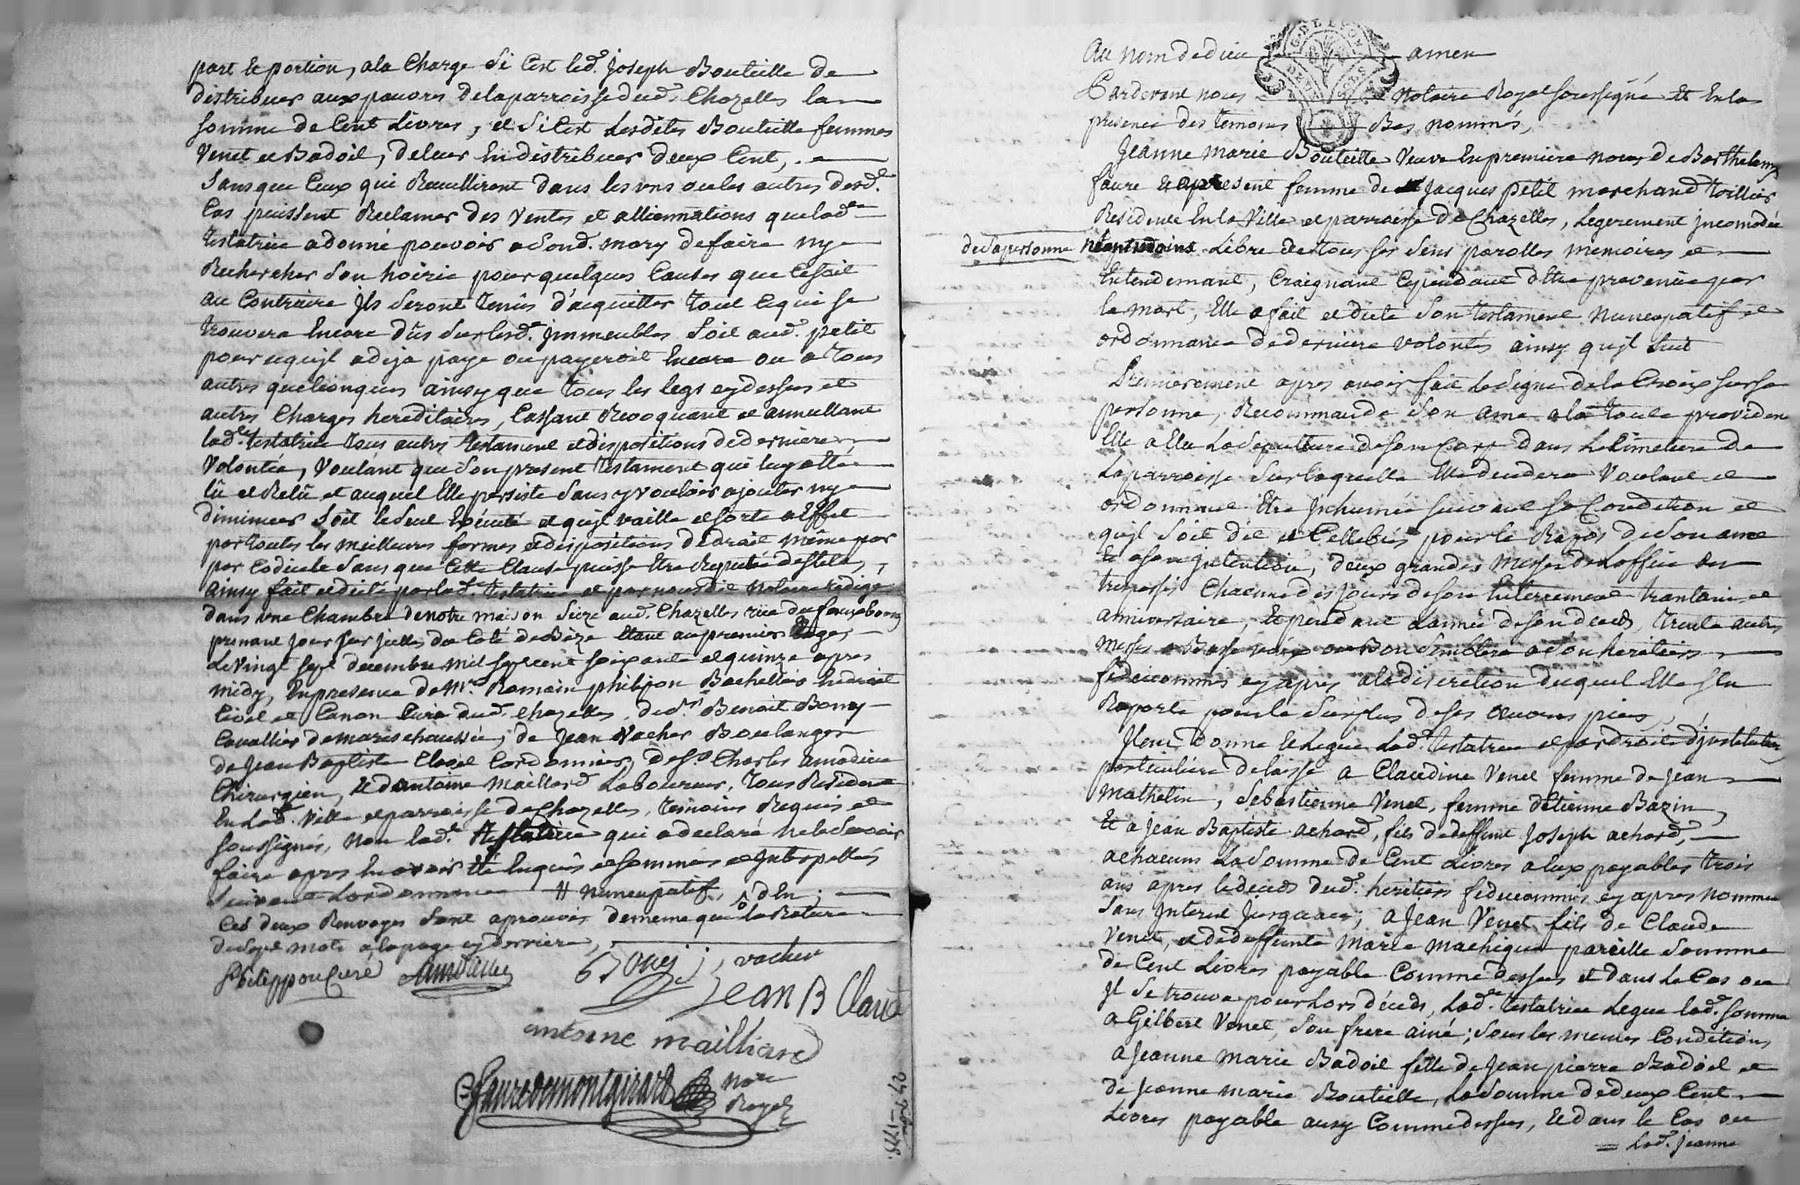 part et portion, a la Charge si C'est led. Joseph Bouteille de
distribuer aux pauvres de la parroisse dud. Chazelles la
somme de Cent Livres, et si C'est Lesdites Bouteille femmes
Venet et Badoil, de leur En distribuer deux Cent,
Sans que Ceux qui Recuilliront dans les uns ou les autres desd.
Cas puissent Reclamer des Ventes et allienations que lad.
testatrice a donné pouvoir a Sond. mary de faire ny
Rechercher Son hoirie pour quelques Causes que Ce soit
au Contraire jls Seront tenus d'acquitter tout Ce qui se
trouvera Encore dûs Sur lesd. jmmeubles Soit aud. petit
pour ce qu'jl a deja payé ou payeroit Encore ou a tous
autres quelconques ainsy que tous les legs cy dessus et
autres Charges hereditaires, Cassant Revoquant et annullant
lad. testatrice tous autres testament et dispositions de derniere
Volontée, Voulant que Son present testament qui luy a été
lû et Relû et auquel Elle persiste Sans y vouloir ajouter ny
diminuer Soit le Seul Executé et qu'jl vaille et sorte a Effet
par toutes les meilleures formes et dispositions de droit même par
par Codicile Sans que Cette Clause puisse Etre Reputée de stile,
ainsy fait et dicté par lad. testatrice et par nousdit Notaire redigé
dans une Chambre de notre maison Size aud. Chazelles rüe du fauxbourg
prenant jour Sur jcelle du Coté de Bize Etant au premier Etage,
Le vingt sept decembre mil sept cent soixante et quinze apres
midy, En presence de Mre. Romain philipon Bachellier En droit
Civil et Canon Curé dud. Chazelles, de Sr. Benoit Bony
Cavallier de marechaussée, de Jean Vacher Boulanger
de Jean Baptiste Clavel Cordonnier, de Sr. Charles amodieu
Chirurgien, et d'antoine Maillard Laboureur, tous Residents
En lad. Ville et parroisse de Chazelles, temoins Requis et
soussignés, Non lad. testatrice qui a declaré ne le Savoir
faire apres En avoir Eté Enquise et Sommée et jnterpellée
Suivant L'ordonnance # Nuncupatif, d En
Ces deux Renvoys Sont aprouvés de meme que la Rature
de Sept mots a la page cy derriere,
Philippon Curé
Bony j, vacher
Jean B Clavel
antoine mailliard
faure de montgirard Nore
Royal
27 Xbre 1775
au nom de dieu amen
Pardevant nous Notaire Royal soussigné Et En la
presence des temoins Bas nommés,
Jeanne Marie Bouteille Veuve En premiere noces de Barthelemy
faure et a present femme de Jacques petit marchand toillier
Residente En la Ville et parroisse de Chazelles, Legerement jncomodée
de Sa personne Libre de tous Ses Sens parolles memoires et
Entendement, Craignant Cependant d'Etre prevenüe par
la mort, Elle a fait et dicté Son testament nuncupatif et
ordonnance de derniere volontés ainsy qu'jl Suit
Premierement apres avoir fait le Signe de la Croix sur sa
personne, Recommandé Son ame a la toute providence
Elle a Elu La Sepulture de Son Corps dans Le Cimetiere de
La parroisse Sur laquelle Elle decedera Voulant et
ordonnant Etre jnhumée suivant Sa Condition et
qu'jl Soit dit et Cellebré pour le Repos de Son ame
et a Son jntention, deux grandes Messes de L'office des
trepassés Chacune des jours de son Enterrement trantain et
aniversaire, Et pendant L'année de Son decès, trente autres
Messes a Basse voix ou Bon Semblera a Son heritiers
fideicommis cy apres a la discretion duquel Elle S'En
Raporte pour le Surplus de Ses œuvres pies,
Jtem Donne et Legue Lad. testatrice et par droit d'justitution
particuliere delaisse a Claudine Venet femme de Jean
Mathelin, Sebastienne Venet, femme d'Etienne Bazin,
Et a Jean Baptiste achard, fils de deffunt Joseph achard,
a chacuns La Somme de Cent Livres a Eux payables trois
ans apres le decès dud. heritier fideicommis cy apres nommé
Sans jnterest jusqu'alors; a Jean Venet fils de Claude
Venet, et de deffunte Marie pareille Somme
de Cent Livres payable Comme dessus et dans Le Cas ou
jl Se trouva pour Lors decedé, Lad. testatrice Legue lad. Somme
a Gilbert Venet, Son frere ainé; Sous les memes Conditions
a Jeanne Marie Badoil fille de Jean pierre Badoil et
de Jeanne Marie Bouteille, La Somme de deux Cent
Livres payable ausy Comme dessus, Et dans le Cas ou
Lad. Jeanne